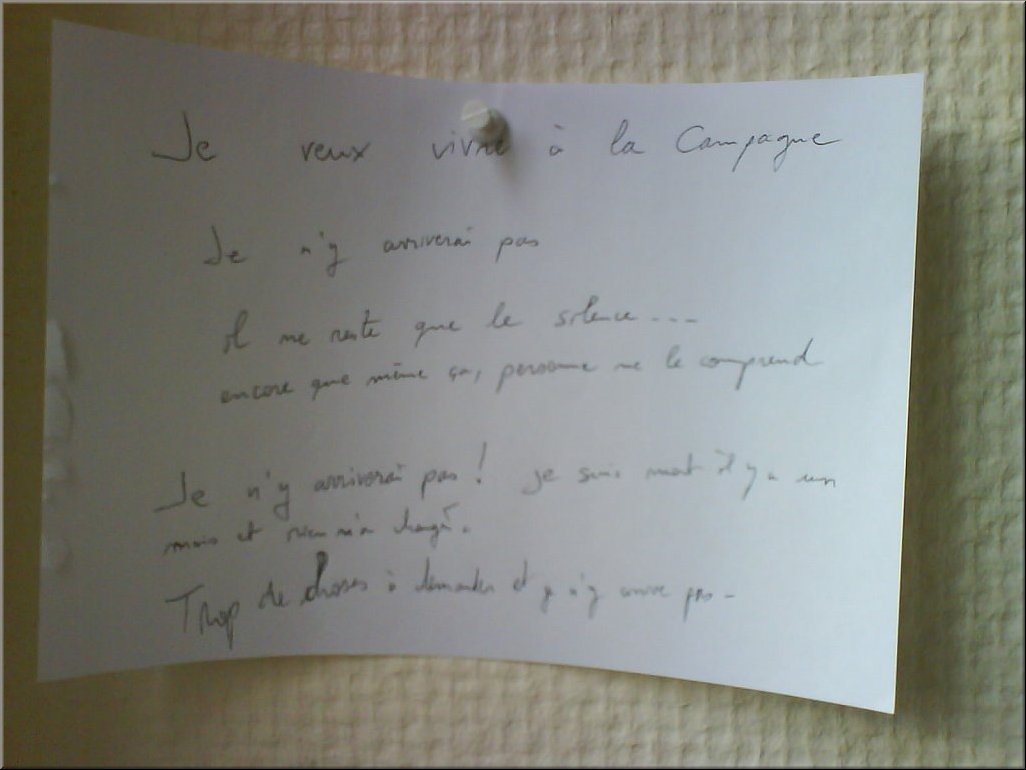 Je veux vivre à la Campagne
Je n'y arriverai pas
il me reste que le silence...
encore que même ça, personne ne le comprend
Je n'y arriverai pas! je suis mort il y a un
mois et rien n'a changé.
Trop de choses à demander et j n'y arrive pas -